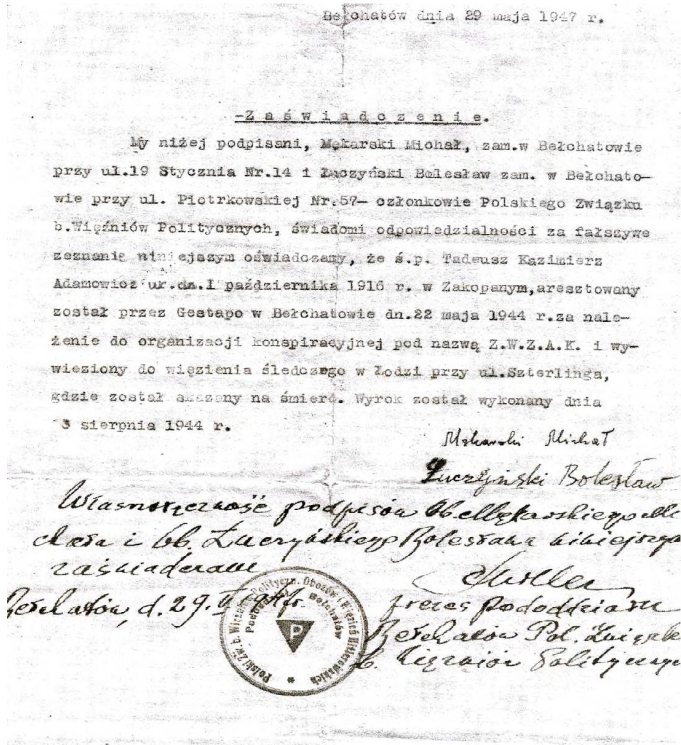 Bełchatów dnia 29 maja 1947 r.
-Zaświadczenie.
My niżej podpisani, Mękarski Michał, zam.w Bełchatowie
przy ul.19 Stycznia Nr.14 i Łuczyński Bolesław zam. w Bełchato-
wie przy ul. Piotrkowskiej Nr.57- członkowie Polskiego Związku
b.Więźniów Politycznych, świadomi odpowiedzialności za fałszywe
zeznanie niniejszym oświadczamy, że ś.p. Tadeusz Kazimierz
Adamowicz ur.dn.I października 1916 r. w Zakopanym,aresztowany
został przez Gestapo w Bełchatowie dn.22 maja 1944 r.za nale-
żenie do organizacji konspiracyjnej pod nazwą Z.W.Z.A.K. i wy-
wieziony do więzienia śledczego w Łodzi przy ul.Szterlinga,
gdzie został skazany na śmierć. Wyrok został wykonany dnia
3 sierpnia 1944 r.
Mękarski Michał
Łuczyński Bolesław
Własnoręczność podpisów Ob Mękarskiego Mi
chała i Ob. Łuczyńskiego Bolesława niniejszym
zaświadczam
Bełchatów, d. 29.
prezes pododdziału
Bełchatów Pol. Związku
b. Więźniów Politycznych
Polski Zw. b. Więźniów Polityczn. Obozów i Więzień Hitlerowskich
Bełchatów
P